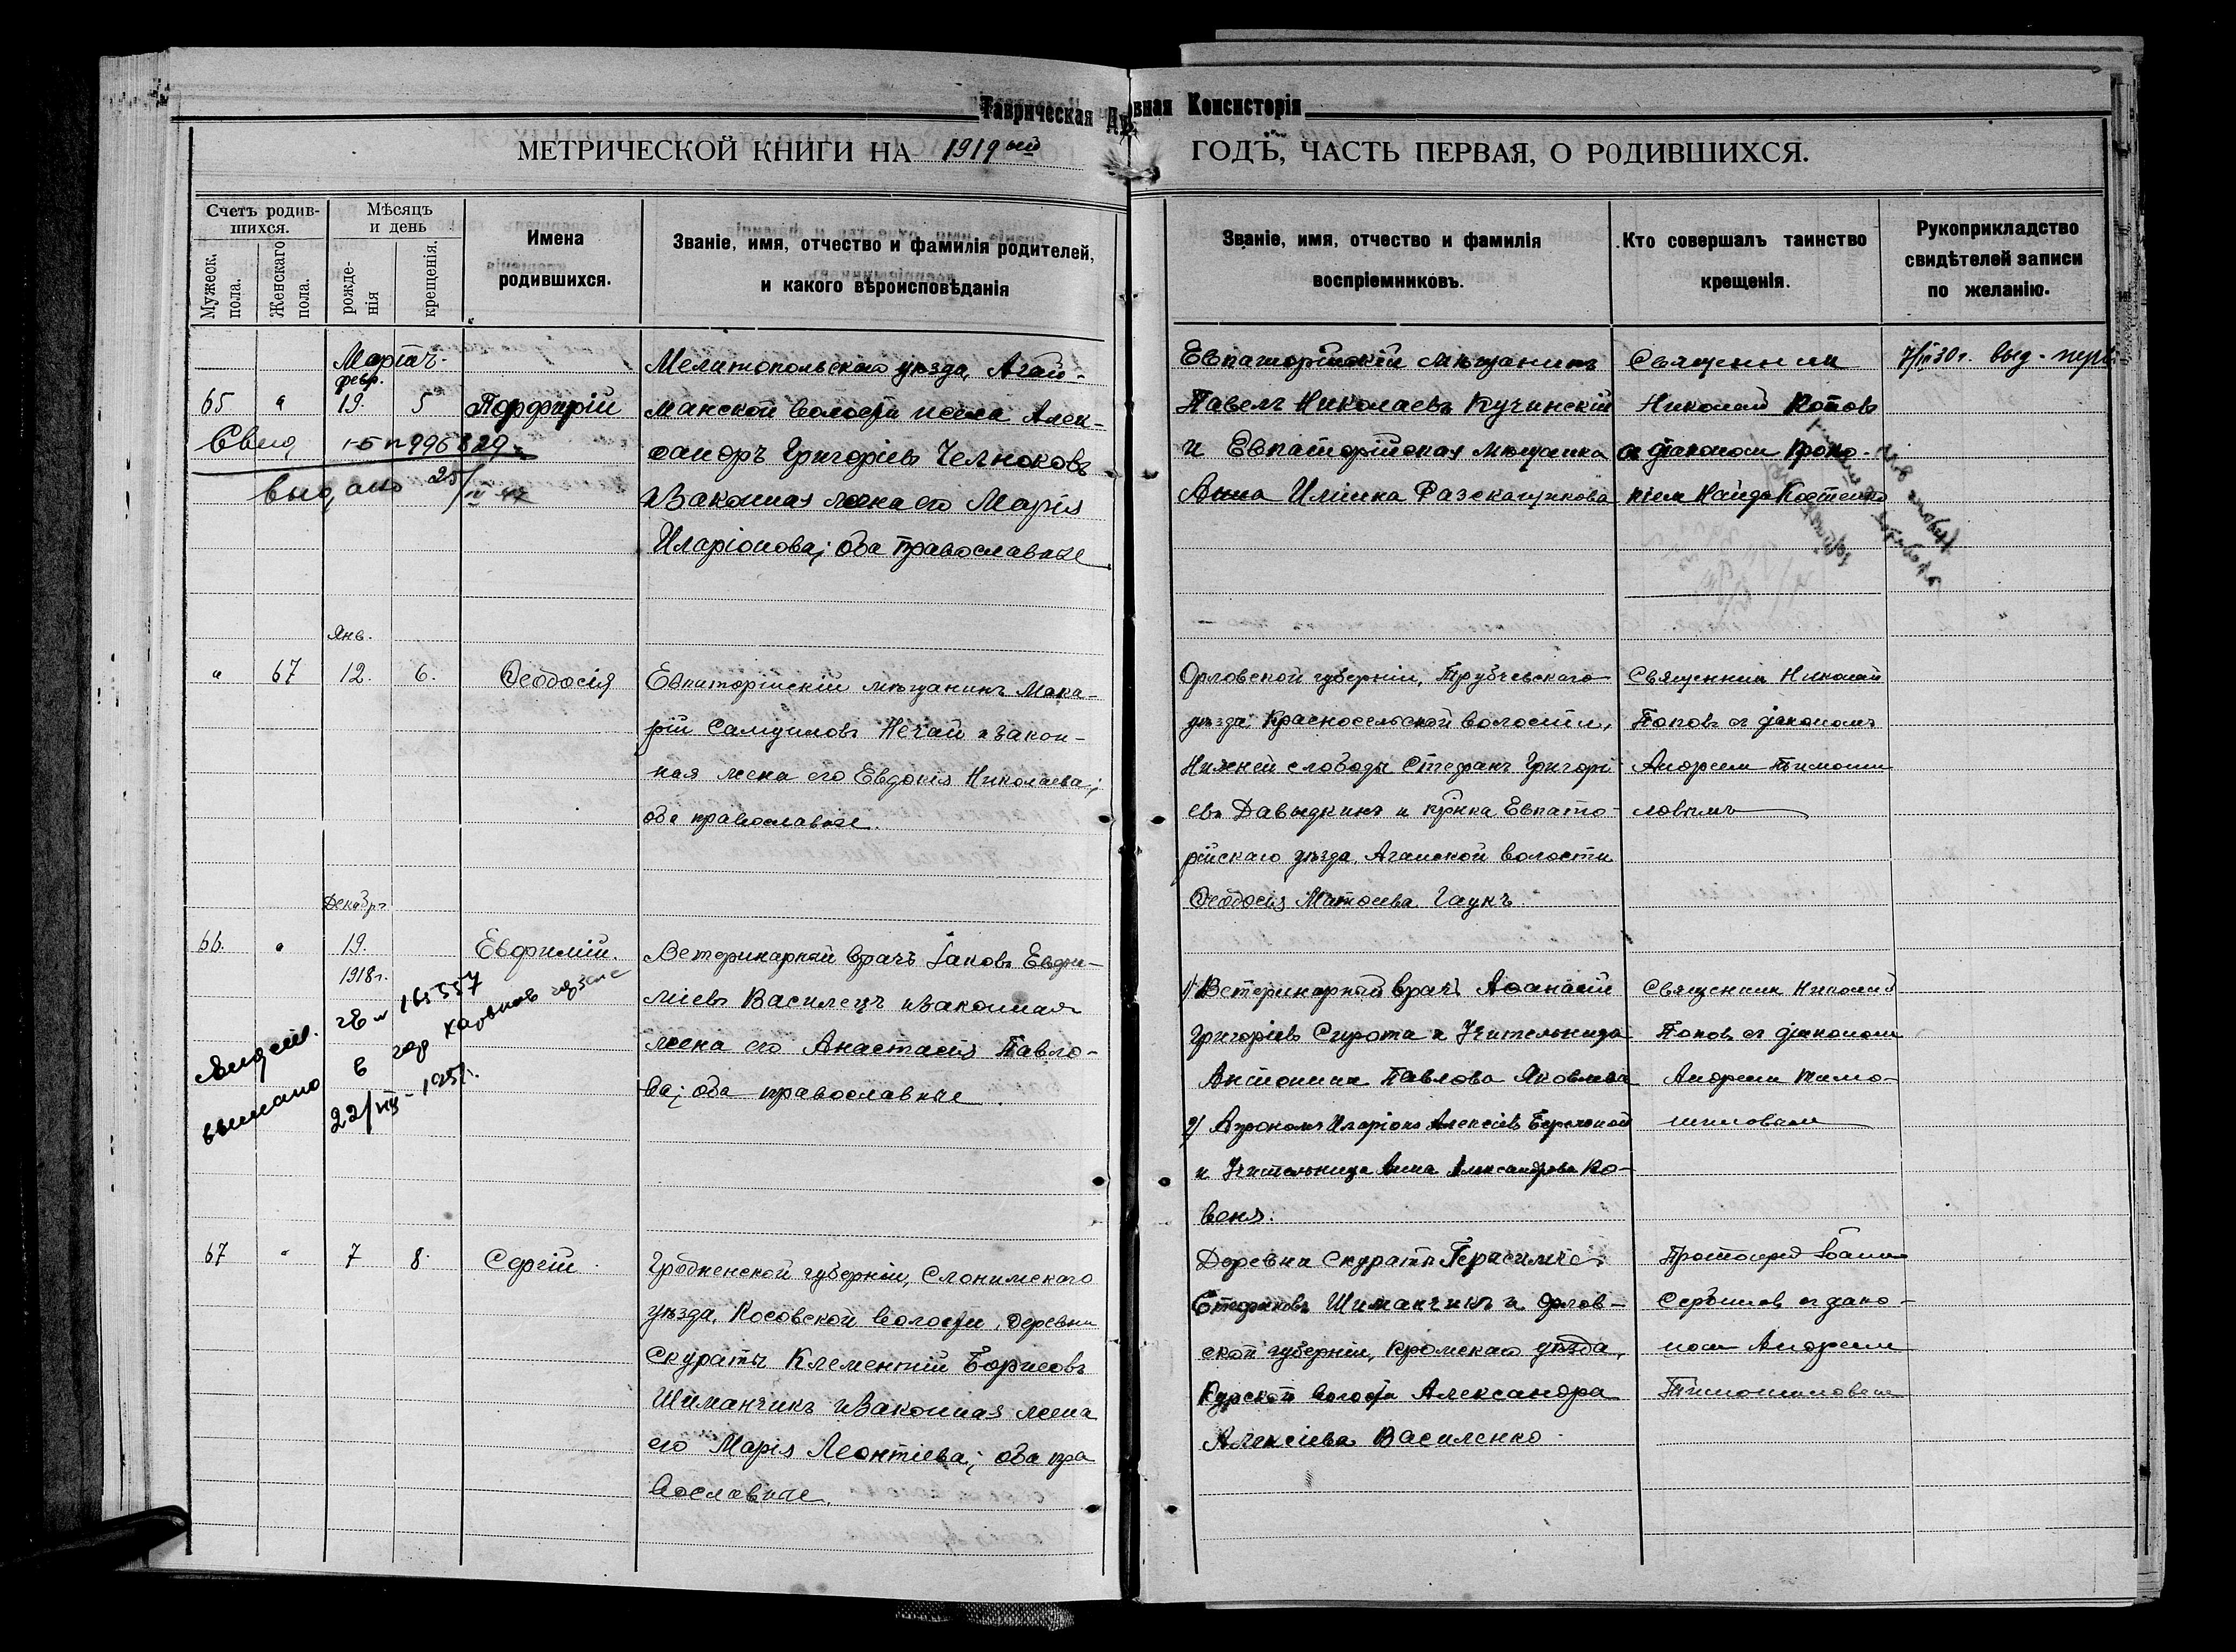 Таврическая Духовная Консисторія
МЕТРИЧЕСКОЙ КНИГИ НА 1919ый ГОДЪ, ЧАСТЬ ПЕРВАЯ, О РОДИВШИХСЯ.
Счетъ родившихся.
Мужеск. пола.
Женскаго пола.
Мѣсяцъ и день
рожденія
крещенія.
Имена родившихся.
Званіе, имя, отчество и фамилія родителей, и какого вѣроисповѣданія
Званіе, имя, отчество и фамилія воспріемниковъ.
Кто совершалъ таинство крещенія.
Рукоприкладство свидѣтелей записи по желанію.
Мартъ.
февр.
65 " 19. 5 Порфирій
Свид 996829
выдано 25/
Мелитопольскаго уѣзда, Агай-
манской волости и села Алек-
сандръ Григорьевъ Челноковъ
и законная жена его Марія
Иларіонова; оба православные
Евпаторійскій мѣщанинъ
Павелъ Николаевъ Кучинскій
и Евпаторійская мѣщанка
Анна Ильина
Священник
Николай Попов
с діаконом Проко-
піем Найда-Костенко
30 г. выд.
Янв.
" 67 12. 6. Ѳеодосія
Евпаторійскій мѣщанинъ Мака-
рій Самуиловъ Нечай и закон-
ная жена его Евдокія Николаева;
оба православные.
Орловской губерніи, Трубчевскаго
уѣзда, Красносельской волости,
Нижней слободы Стефанъ Григорі
евъ Давыдкинъ и кр-нка Евпато-
рійскаго уѣзда, Агайской волости
Ѳеодосія Матѳеева Гаунъ
Священник Николай
Поповъ съ діакономъ
Андреем Тимоши
ловымъ
Декабрь
66. " 19. Евфимій.
1918 г.
165557
выслано в гор Харьков
22/VIII-1951.
Ветеринарный врачъ Іаковъ Евфи-
міевъ Василецъ и законная
жена его Анастасія Павло-
ва; оба православные.
1/ Ветеринарный врачъ Аѳанасій
Григоріевъ Сирота и Учительница
Антонина Павлова Яковлева
2/ Агрономъ Иларіонъ Алексіевъ Бережной
и Учительница Анна Александрова Ко-
веня.
Священник Николай
Попов с діаконом
Андреем Тимо-
шиловым
67 " 7 8. Сергій
Гродненской губерніи, Слонимскаго
уѣзда, Косовской волости, деревни
Скураты Клементій Борисовъ
Шиманчикъ и законная жена
его Марія Леонтіева; оба пра
вославные.
Деревни Скураты Герасимъ
Стефановъ Шиманчикъ и Орлов-
ской губерніи, Кромскаго уѣзда,
Курской волости Александра
Алексіева Василенко.
Протоіерей Іоаннъ
Сербинов с діако-
ном Андреем
Тимошиловым